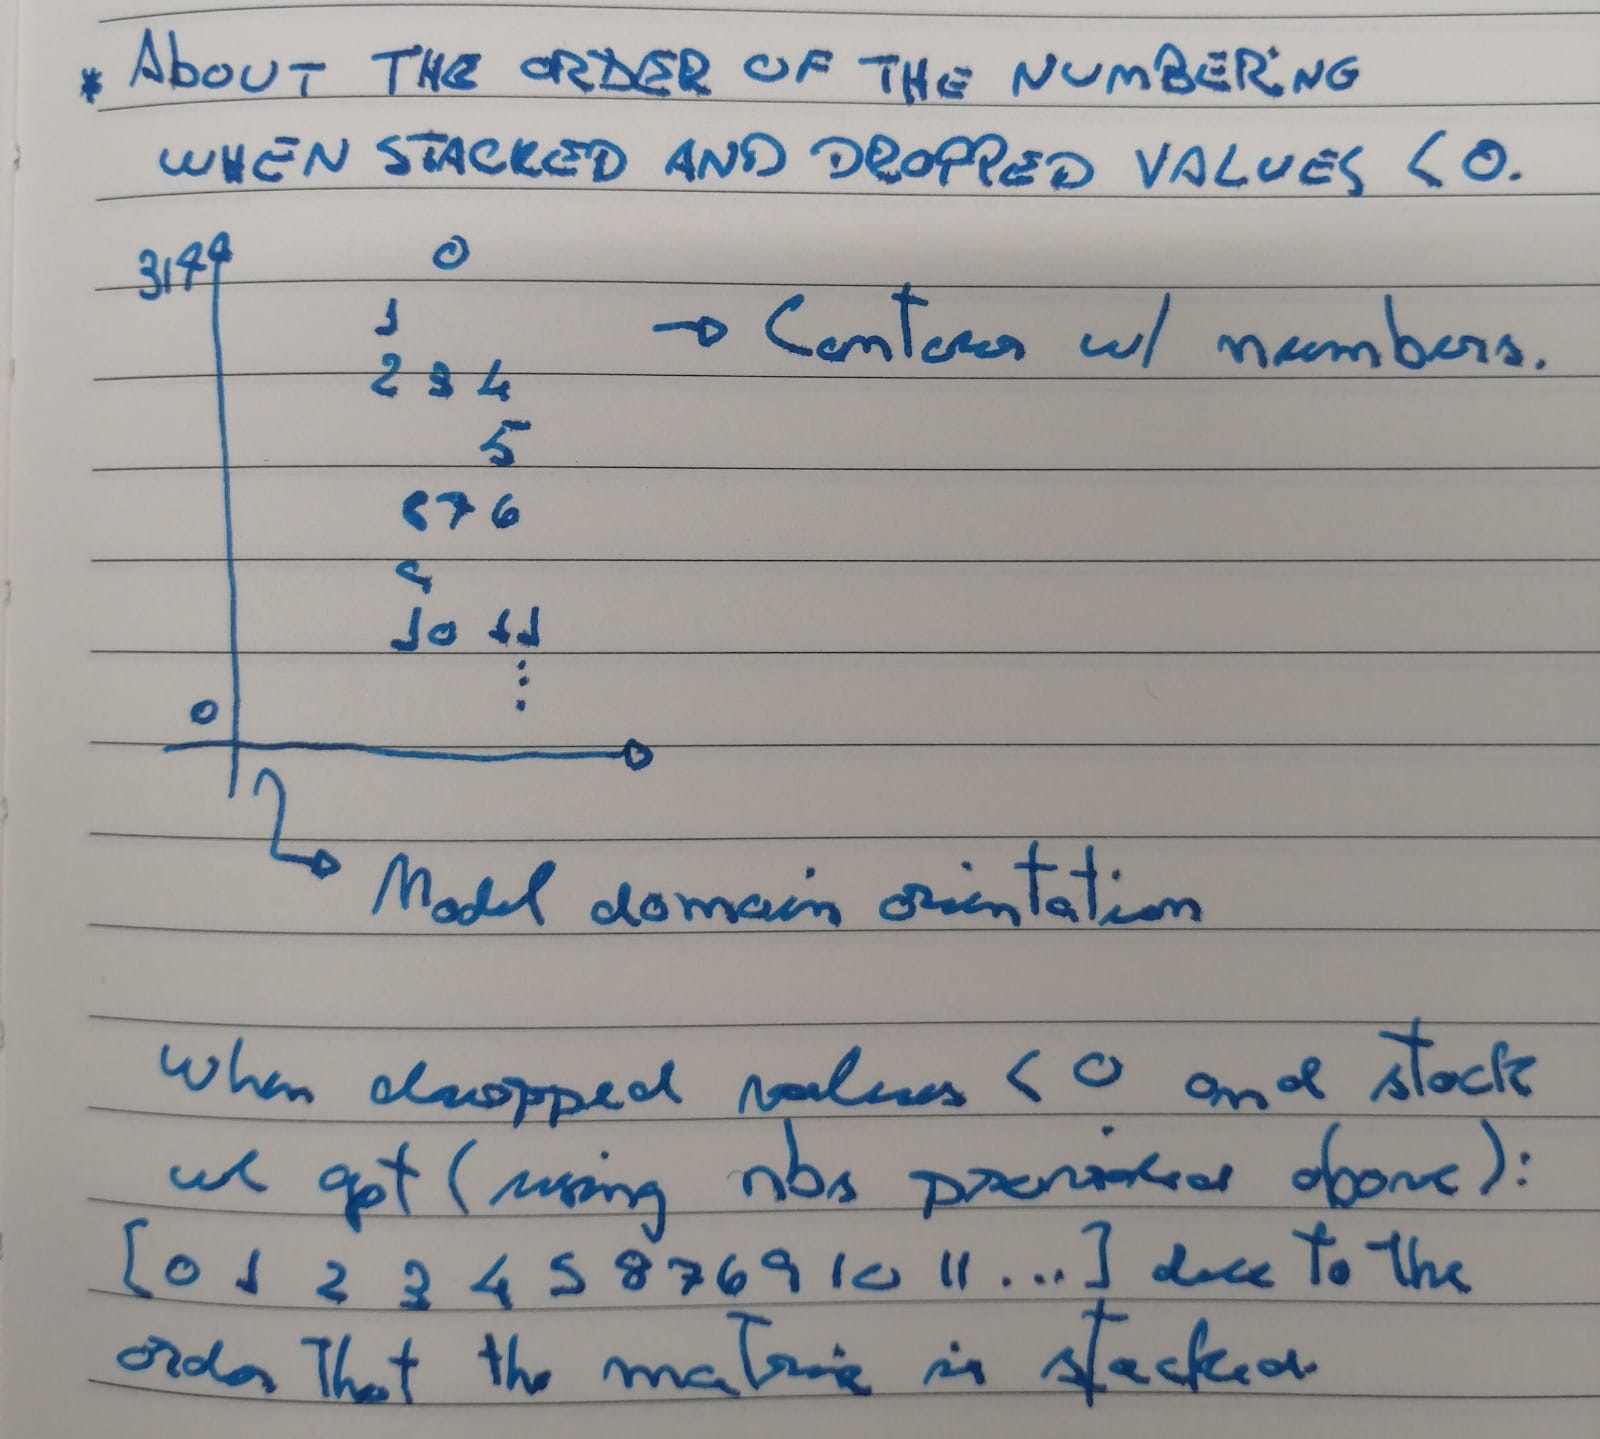 * ABOUT THE ORDER OF THE NUMBERING
WHEN STACKED AND DROPPED VALUES < 0.
3144 0
1
→ Contour w/ numbers.
2 3 4
5
8 7 6
9
10 11
⋮
0
Model domain orientation
When dropped values < 0 and stack
we get (using nbs provided above):
[0 1 2 3 4 5 8 7 6 9 10 11 ...] due to the
order that the matrix is stacked.